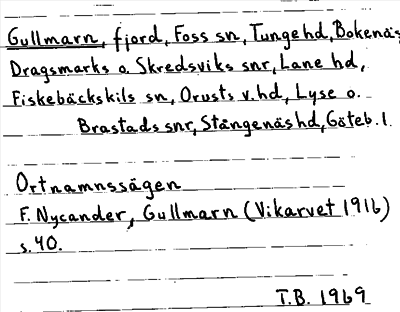 Gullmarn, fjord, Foss sn, Tunge hd, Bokenäs
Dragsmarks o. Skredsviks snr, Lane hd,
Fiskebäckskils sn, Orusts v. hd, Lyse o.
Brastads snr, Stångenäs hd, Göteb. l.
Ortnamnssägen
F. Nycander, Gullmarn (Vikarvet 1916)
s. 40.
T.B. 1969